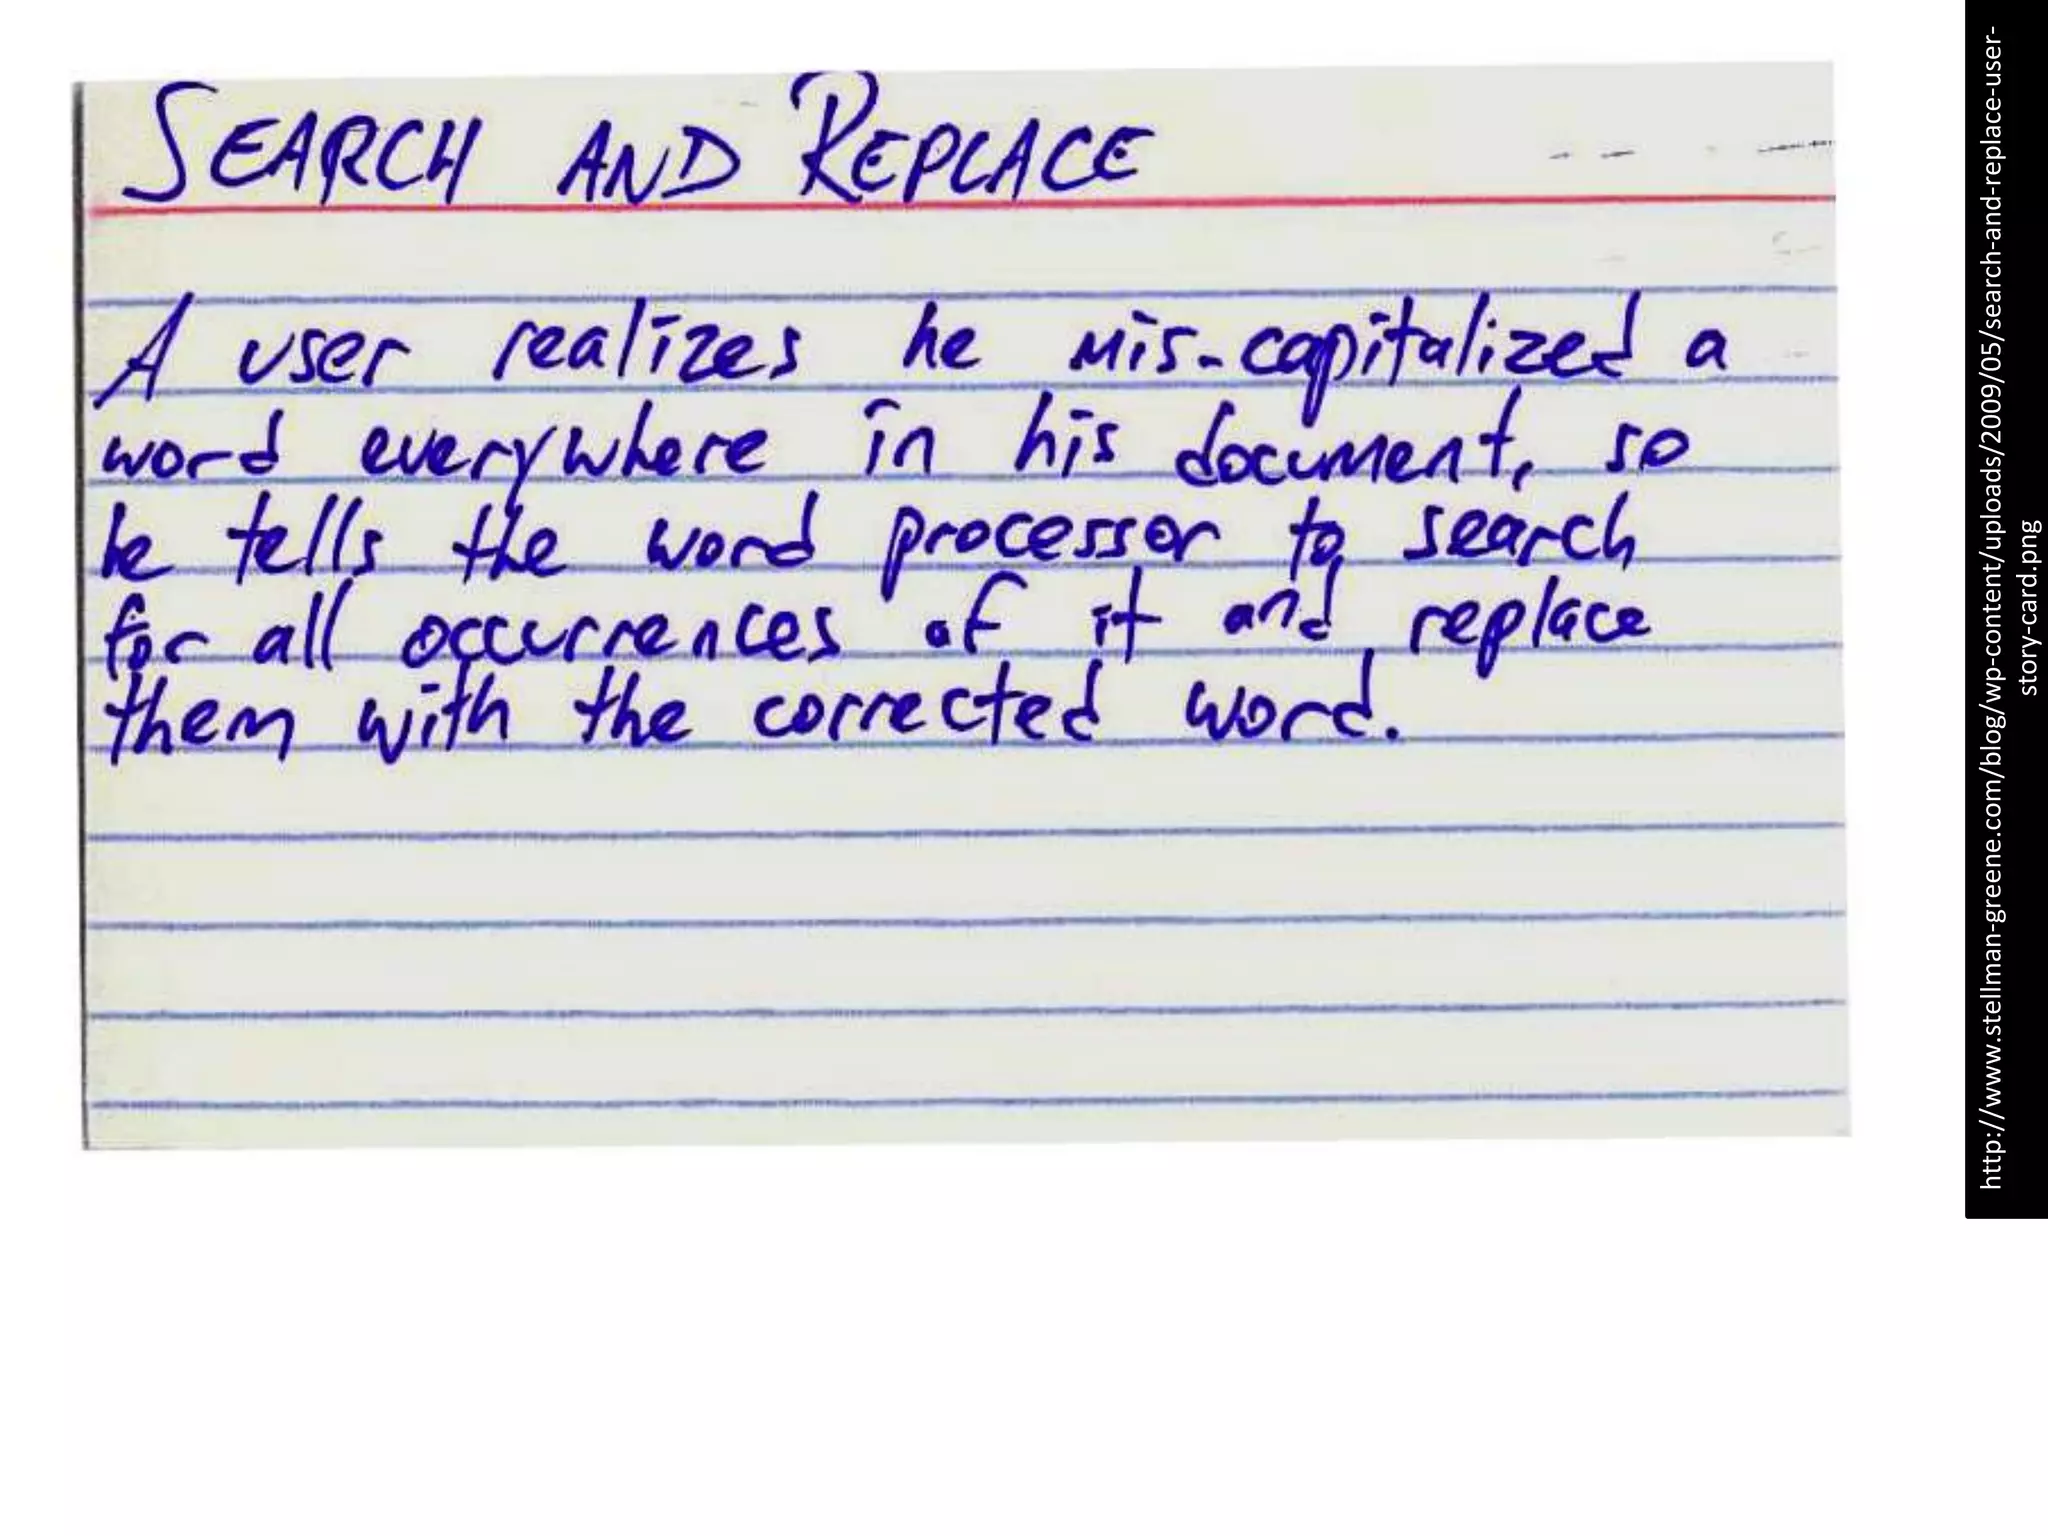 SEARCH AND REPLACE
A user realizes he mis-capitalized a
word everywhere in his document, so
he tells the word processor to search
for all occurrences of it and replace
them with the corrected word.
http://www.stellman-greene.com/blog/wp-content/uploads/2009/05/search-and-replace-user-
story-card.png